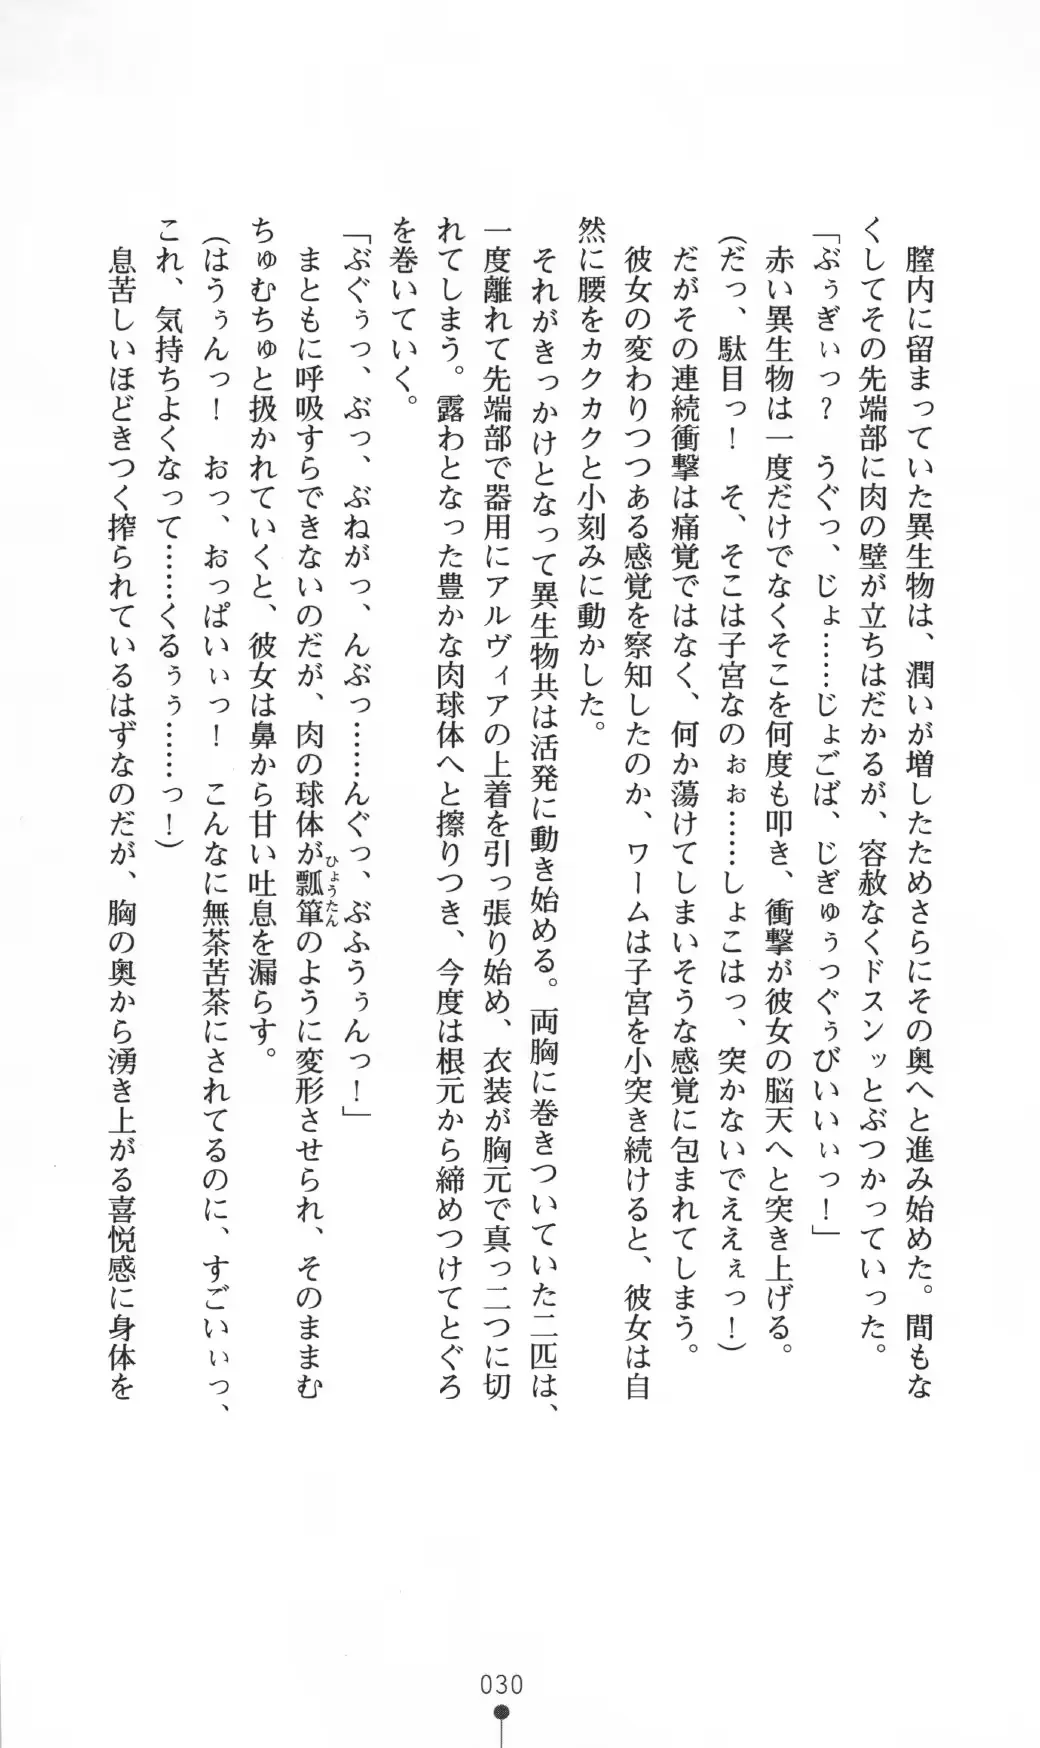 膣内に留まっていた異生物は、潤いが増したためさらにその奥へと進み始めた。間もな
くしてその先端部に肉の壁が立ちはだかるが、容赦なくドスンッとぶつかっていった。
「ぶぅぎぃっ？　うぐっ、じょ……じょごば、じぎゅぅっぐぅびいいぃっ！」
赤い異生物は一度だけでなくそこを何度も叩き、衝撃が彼女の脳天へと突き上げる。
（だっ、駄目っ！　そ、そこは子宮なのぉぉ……しょこはっ、突かないでええぇっ！）
だがその連続衝撃は痛覚ではなく、何か蕩けてしまいそうな感覚に包まれてしまう。
彼女の変わりつつある感覚を察知したのか、ワームは子宮を小突き続けると、彼女は自
然に腰をカクカクと小刻みに動かした。
それがきっかけとなって異生物共は活発に動き始める。両胸に巻きついていた二匹は、
一度離れて先端部で器用にアルヴィアの上着を引っ張り始め、衣装が胸元で真っ二つに切
れてしまう。露わとなった豊かな肉球体へと擦りつき、今度は根元から締めつけてとぐろ
を巻いていく。
「ぶぐぅっ、ぶっ、ぶねがっ、んぶっ……んぐっ、ぶふうぅんっ！」
まともに呼吸すらできないのだが、肉の球体が瓢箪のように変形させられ、そのままむ
ひょうたん
ちゅむちゅと扱かれていくと、彼女は鼻から甘い吐息を漏らす。
（はうぅんっ！　おっ、おっぱいぃっ！　こんなに無茶苦茶にされてるのに、すごいぃっ、
これ、気持ちよくなって……くるぅぅ……っ！）
息苦しいほどきつく搾られているはずなのだが、胸の奥から湧き上がる喜悦感に身体を
030